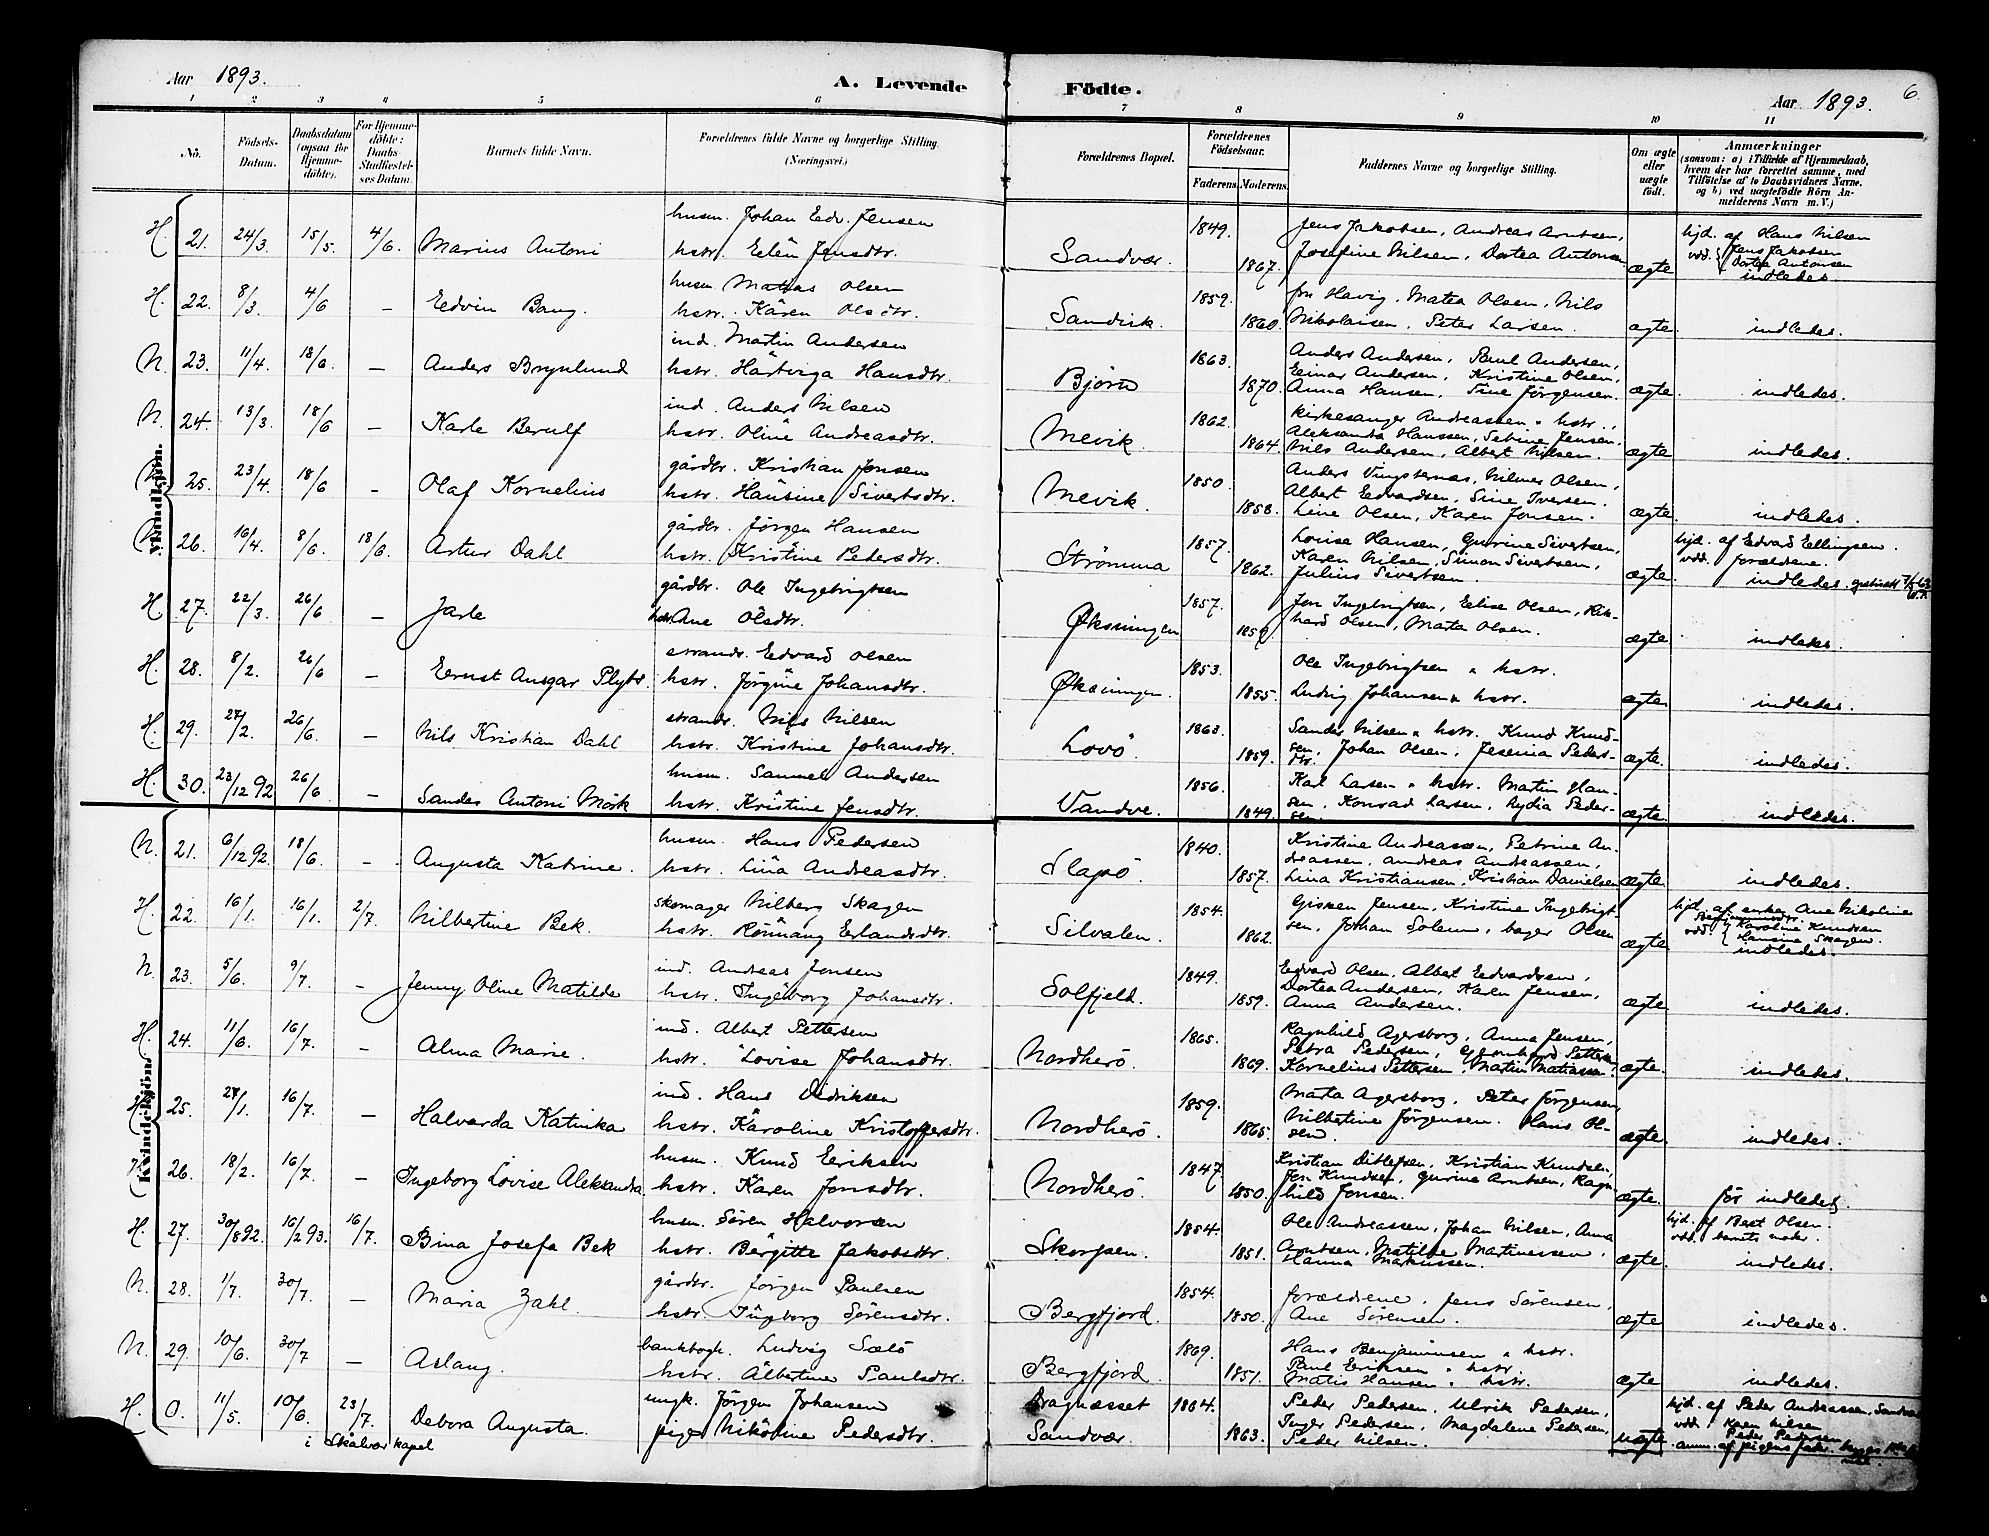 Aar 1893. A. Levende Födte. Aar 1893. 6.
1 2 3 4 5 6 7 8 9 10 11
Nô. Födsels-Datum. Daabsdatum (ogsaa for Hjemme-döbte). For Hjemme-döbte: Daabs-Stadfæstel-ses Datum. Barnets fulde Navn. Forældrenes fulde Navne og borgerlige Stilling. (Næringsvei.) Forældrenes Bopæl. Forældrenes Födselsaar. Faderens. Moderens. Faddernes Navne og borgerlige Stilling. Om ægte eller uægte födt. Anmærkninger (saasom: a) i Tilfælde af Hjemmedaab, hvem der har forrettet samme, med Tilföielse af to Daabsvidners Navne. og b) ved uægtefödte Börn An-melderens Navn m. V.)
Mandkjön.
H. 21. 24/3. 15/5. 4/6. Marius Antoni husm. Johan Edv. Jensen hstr. Elen Jensdtr. Sandvær. 1849. 1867. Jens Jakobsen, Andreas Arntsen, Josefine Nilsen, Dortea Antonsen ægte hjd. af Hans Nilsen vdd. Jens Jakobsen Dortea Antonsen indledes.
H. 22. 8/3. 4/6 – Edvin Bang. husm. Matias Olsen hstr. Karen Olsdtr. Sandvik. 1859. 1860. fru Havig. Matea Olsen, Nils Nikolaisen. Peter Larsen. ægte. indledes.
N. 23. 11/4. 18/6. – Anders Brynlund ind. Martin Andersen hstr. Hartviga Hansdtr. Bjørn 1863. 1870. Anders Andersen, Paul Andersen, Einar Andersen, Kristine Olsen, Anna Hansen, Sine Jörgensen. ægte. indledes.
N. 24. 13/3. 18/6 – Karle Berulf ind. Anders Nilsen hstr. Oline Andreasdtr. Mevik. 1862. 1864. kirkesanger Andreassen & hstr., Aleksandra Hanssen, Sebine Jensen, Nils Andersen, Albert Nilsen. ægte. indledes.
25. 23/4. 18/6 – Olaf Kornelius gårdbr. Kristian Jonsen hstr. Hansine Sivertsdtr. Mevik. 1850. 1858. Anders Vingsternæs, Nilmer Olsen, Albert Edvardsen, Sine Iversen, Line Olsen, Karen Jonsen. ægte. indledes.
N. 26. 16/4. 8/6. 18/6. Artur Dahl gårdbr. Jörgen Hansen hstr. Kristine Pedersdtr. Strömma 1857. 1862. Louise Hansen, Gurine Sivertsen, Karen Nilsen, Simon Sivertsen, Julius Sivertsen. ægte hjd. af Edvard Ellingsen. vdd. forældrene. indledes.
H. 27. 22/3. 26/6 – Jarle gårdbr. Ole Ingebrigtsen hstr. Ane Olsdtr. Øksningen 1857. 1859. Jon Ingebrigtsen, Elise Olsen, Rik-hard Olsen, Marta Olsen. ægte. indledes.
H. 28. 8/2. 26/6 – Ernst Ansgar Plybt. strandr. Edvard Olsen hstr. Jörgine Johansdtr. Øksningen. 1853. 1855. Ole Ingebrigtsen & hstr. Ludvig Johansen & hstr. ægte. indledes.
H. 29. 27/2. 26/6. – Nils Kristian Dahl strandr. Nils Nilsen hstr. Kristine Johansdtr. Lovö 1863. 1859. Sander Nilsen & hstr. Knud Knud-sen, Johan Olsen, Jesenia Peders-dtr. ægte. indledes.
H. 30. 23/12 92 26/6 – Sander Antoni Mörk husm. Samuel Andersen hstr. Kristine Jensdtr. Vandve. 1856. 1849. Karl Larsen & hstr. Martin Han-sen, Konrad Larsen, Lydia Peder-sen. ægte. indledes.
Kvindekjön.
N. 21. 6/12 92. 18/6. – Augusta Katrine. husm. Hans Pedersen hstr. Lina Andreasdtr. Slapsö. 1840. 1857. Kristine Andreassen, Petrine An-dreassen, Andreas Andreassen, Lina Kristiansen, Kristian Danielsen ægte. indledes.
H. 22. 16/1. 16/1. 2/7. Nilbertine Bek. skomager Nilberg Skagen hstr. Rönnaug Erlandsdtr. Silvalen. 1854. 1862. Gisken Jensen, Kristine Ingebrigt-sen, Johan Solem, bager Olsen ægte hjd. af enken Ane Nikoline Benjaminsdtr. vdd. Karoline Knudsen Hansine Skagen. indledes.
N. 23. 5/6. 9/7. – Jenny Oline Matilde ind. Andreas Jonsen hstr. Ingeborg Johansdtr. Solfjeld. 1849. 1859. Edvard Olsen. Albert Edvardsen, Dortea Andersen, Karen Jensen, Anna Andersen. ægte indledes.
H. 24. 11/6. 16/7. – Alma Marie. ind. Albert Pettersen hstr. Lovise Johansdtr. Nordherö 1865. 1869. Ragnhild Agersborg, Anna Jensen, Petra Pedersen, Pettersen, Kornelius Pettersen, Martin Matiassen. ægte. indledes.
H. 25. 27/1. 16/7. – Halvarda Katinka ind. Hans Didriksen hstr. Karoline Kristoffersdtr. Nordherö. 1859. 1865. Marta Agersborg, Peter Jörgensen, Nilbertine Jörgensen. Hans Ol-sen. ægte indledes.
26. 18/2. 16/7. – Ingeborg Lovise Aleksandra husm. Knud Eriksen hstr. Karen Jonsdtr. Nordherö. 1847. 1850. Kristian Ditlefsen, Kristian Knudsen, Jon Knudsen, Gurine Arntsen, Ragn-hild Jonsen. ægte för indledes
H. 27. 30/8 92. 16/2 93. 16/7. Bina Josefa Bek husm. Sören Halvorsen hstr. Bergitte Jakobsdtr. Skorpen. 1854. 1851. Ole Andreassen, Johan Nilsen, Anna Arntsen, Matilde Martinussen, Hanna Markussen. ægte. hjd. af Beat Olsen. vdd. barnets moder. indledes.
N. 28. 1/7. 30/7. – Maria Zahl. gårdbr. Jörgen Paulsen hstr. Ingborg Sörensdtr. Bergfjord. 1854. 1850. forældrene, Jens Sörensen, Ane Sörensen. ægte indledes.
N. 29. 10/6. 30/7 – Aslaug. bankbogh. Ludvig Salö hstr. Albertine Paulsdtr. Bergfjord. 1869. 1851. Hans Benjaminsen & hstr. Paul Eriksen & hstr. Matis Hansen & hstr. ægte indledes.
H. 0. 11/5. 10/6. 23/7. Debora Augusta. i Skålvær kapel ungk. Jörgen Johansen pige Nikoline Pedersdtr. Dragnæsset Sandvær. 1864. 1863. Peder Pedersen, Ulrik Pedersen, Inger Pedersen, Magdalene Pedersen, Peder Nilsen. uægte. hjd. af Peder Andreassen, Sandvær vdd. Karen Nilsen Peder Pedersen anm. af pigens fader.